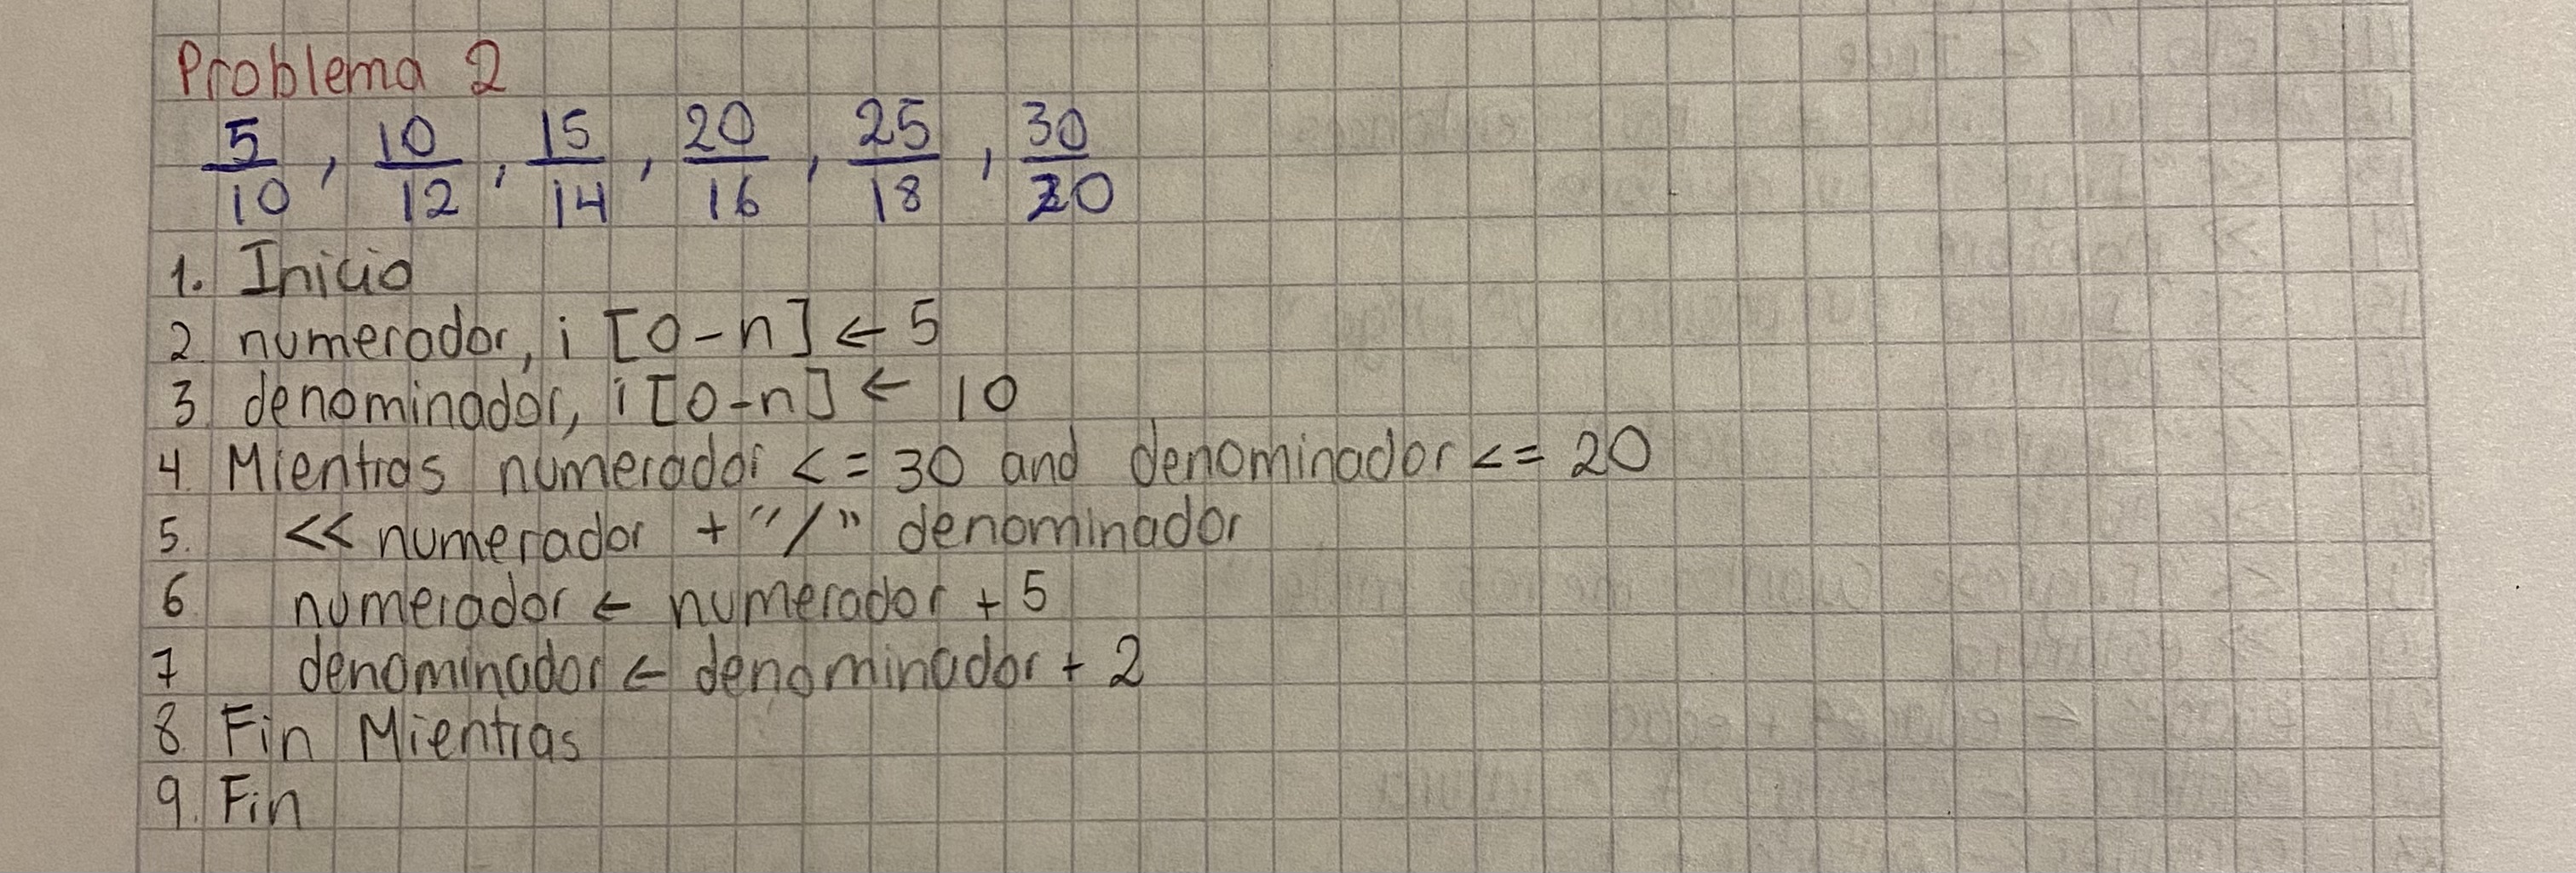 Problema 2
5/10, 10/12, 15/14, 20/16, 25/18, 30/20
1. Inicio
2. numerador, i [0-n] ← 5
3. denominador, i [0-n] ← 10
4. Mientras numerador <= 30 and denominador <= 20
5. << numerador + "/" denominador
6. numerador ← numerador + 5
7 denominador ← denominador + 2
8. Fin Mientras
9. Fin